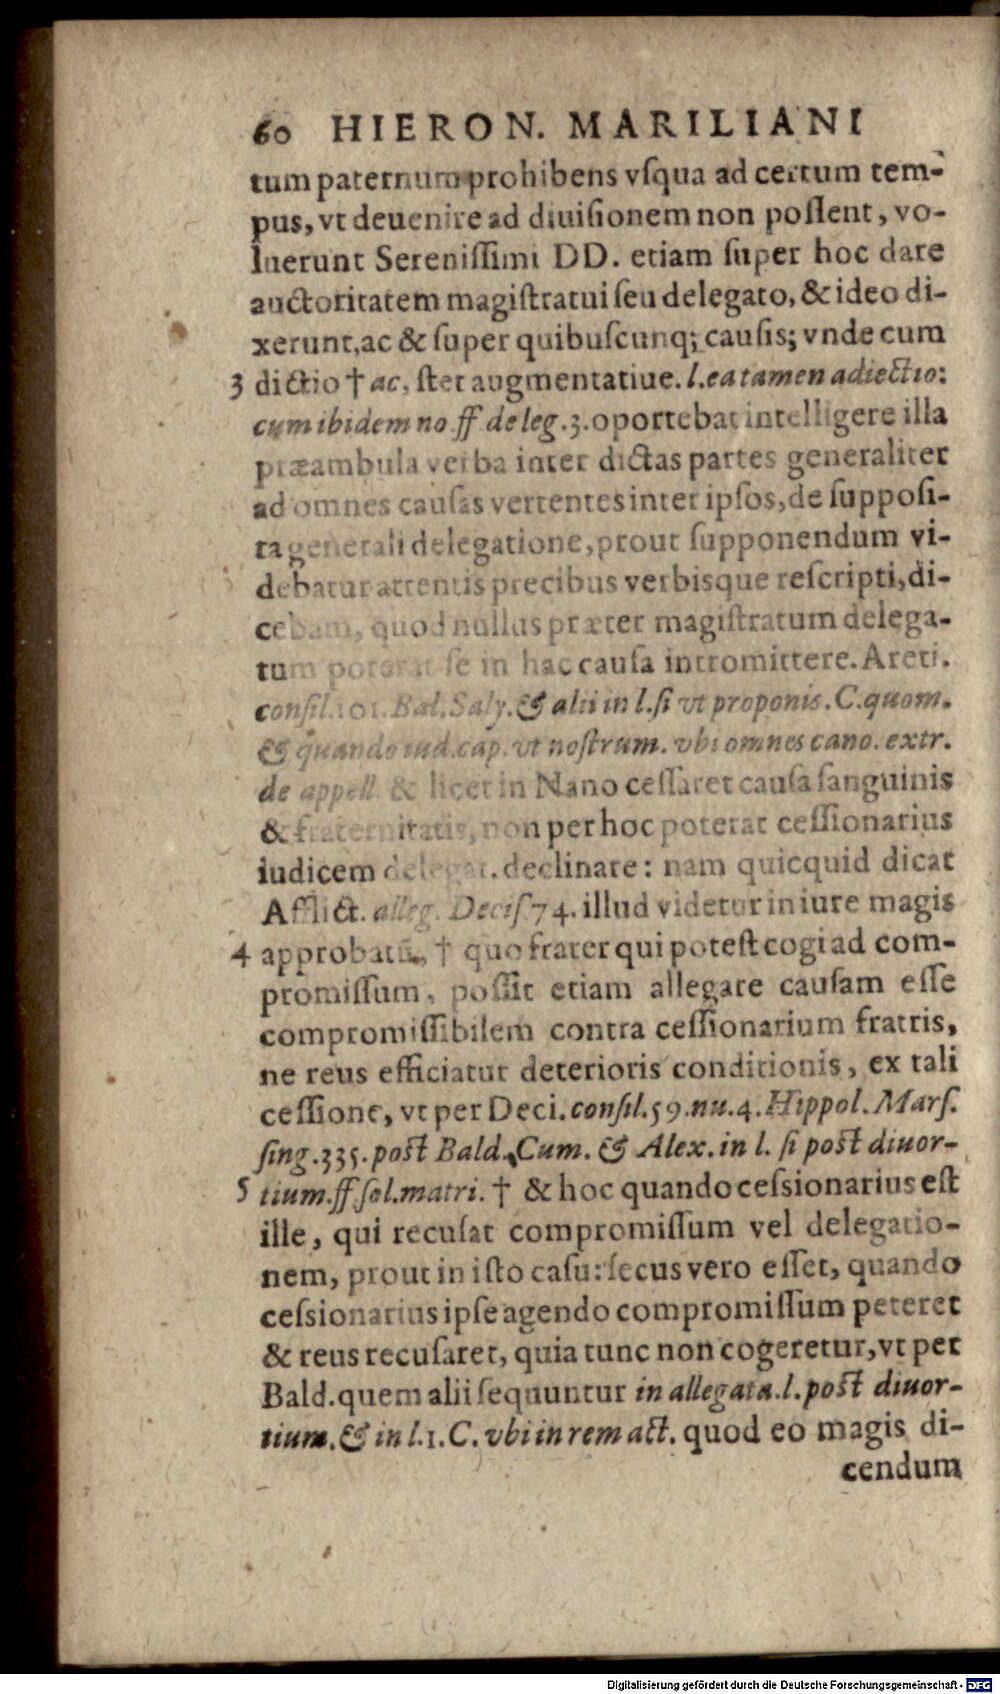 60 HIERON. MARILIANI
tum paternum prohibens vſqua ad certum tem-
pus, vt deuenire ad diuiſionem non poſſent, vo-
luerunt Sereniſſimi DD. etiam ſuper hoc dare
auctoritatem magiſtratui ſeu delegato, & ideo di-
xerunt, ac & ſuper quibuſcunq; cauſis; vnde cum
3 dictio † ac, ſtet augmentatiue. l. ea tamen adiectio:
cum ibidem no. ff de leg. 3. oportebat intelligere illa
præambula verba inter dictas partes generaliter
ad omnes cauſas vertentes inter ipſos, de ſuppoſi-
ta generali delegatione, prout ſupponendum vi-
debatur attentis precibus verbisque reſcripti, di-
cebam, quod nullus præter magiſtratum delega-
tum poterat ſe in hac cauſa intromittere. Areti.
conſil. 101. Bal. Saly. & alii in l. ſi vt proponis. C. quom.
& quando iud. cap. vt noſtrum. vbi omnes cano. extr.
de appell. & licet in Nano ceſſaret cauſa ſanguinis
& fraternitatis, non per hoc poterat ceſſionarius
iudicem delegat. declinare: nam quicquid dicat
Afflict. alleg. Deciſ 74. illud videtur in iure magis
4 approbatũ, † quo frater qui poteſt cogi ad com-
promiſſum, poſſit etiam allegare cauſam eſſe
compromiſſibilem contra ceſſionarium fratris,
ne reus efficiatur deterioris conditionis, ex tali
ceſſione, vt per Deci. conſil. 59. nu. 4. Hippol. Marſ.
ſing. 335. poſt Bald. Cum. & Alex. in l. ſi poſt diuor-
5 tium. ff ſol. matri. † & hoc quando ceſsionarius eſt
ille, qui recuſat compromiſſum vel delegatio-
nem, prout in iſto caſu: ſecus vero eſſet, quando
ceſsionarius ipſe agendo compromiſſum peteret
& reus recuſaret, quia tunc non cogeretur, vt per
Bald. quem alii ſequuntur in allegata. l. poſt diuor-
tium. & in l. 1. C. vbi in rem act. quod eo magis di-
cendum
Digitalisierung gefördert durch die Deutsche Forschungsgemeinschaft - DFG